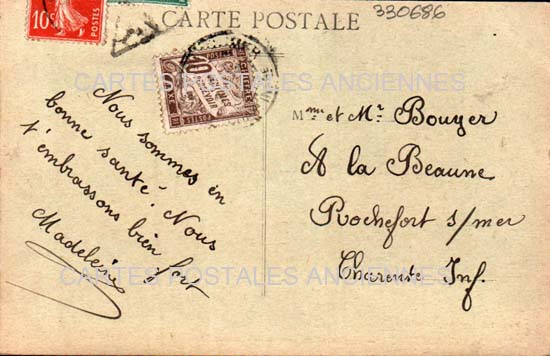 CARTE POSTALE
330686
10c
POSTES
CARTES POSTALES ANCIENNES
Nous sommes en
bonne santé. Nous
t'embrassons bien fort
Madeleine
Mme et Mr Bouyer
A la Beaune
Rochefort s/mer
Charente Inf.
CARTES POSTALES ANCIENNES